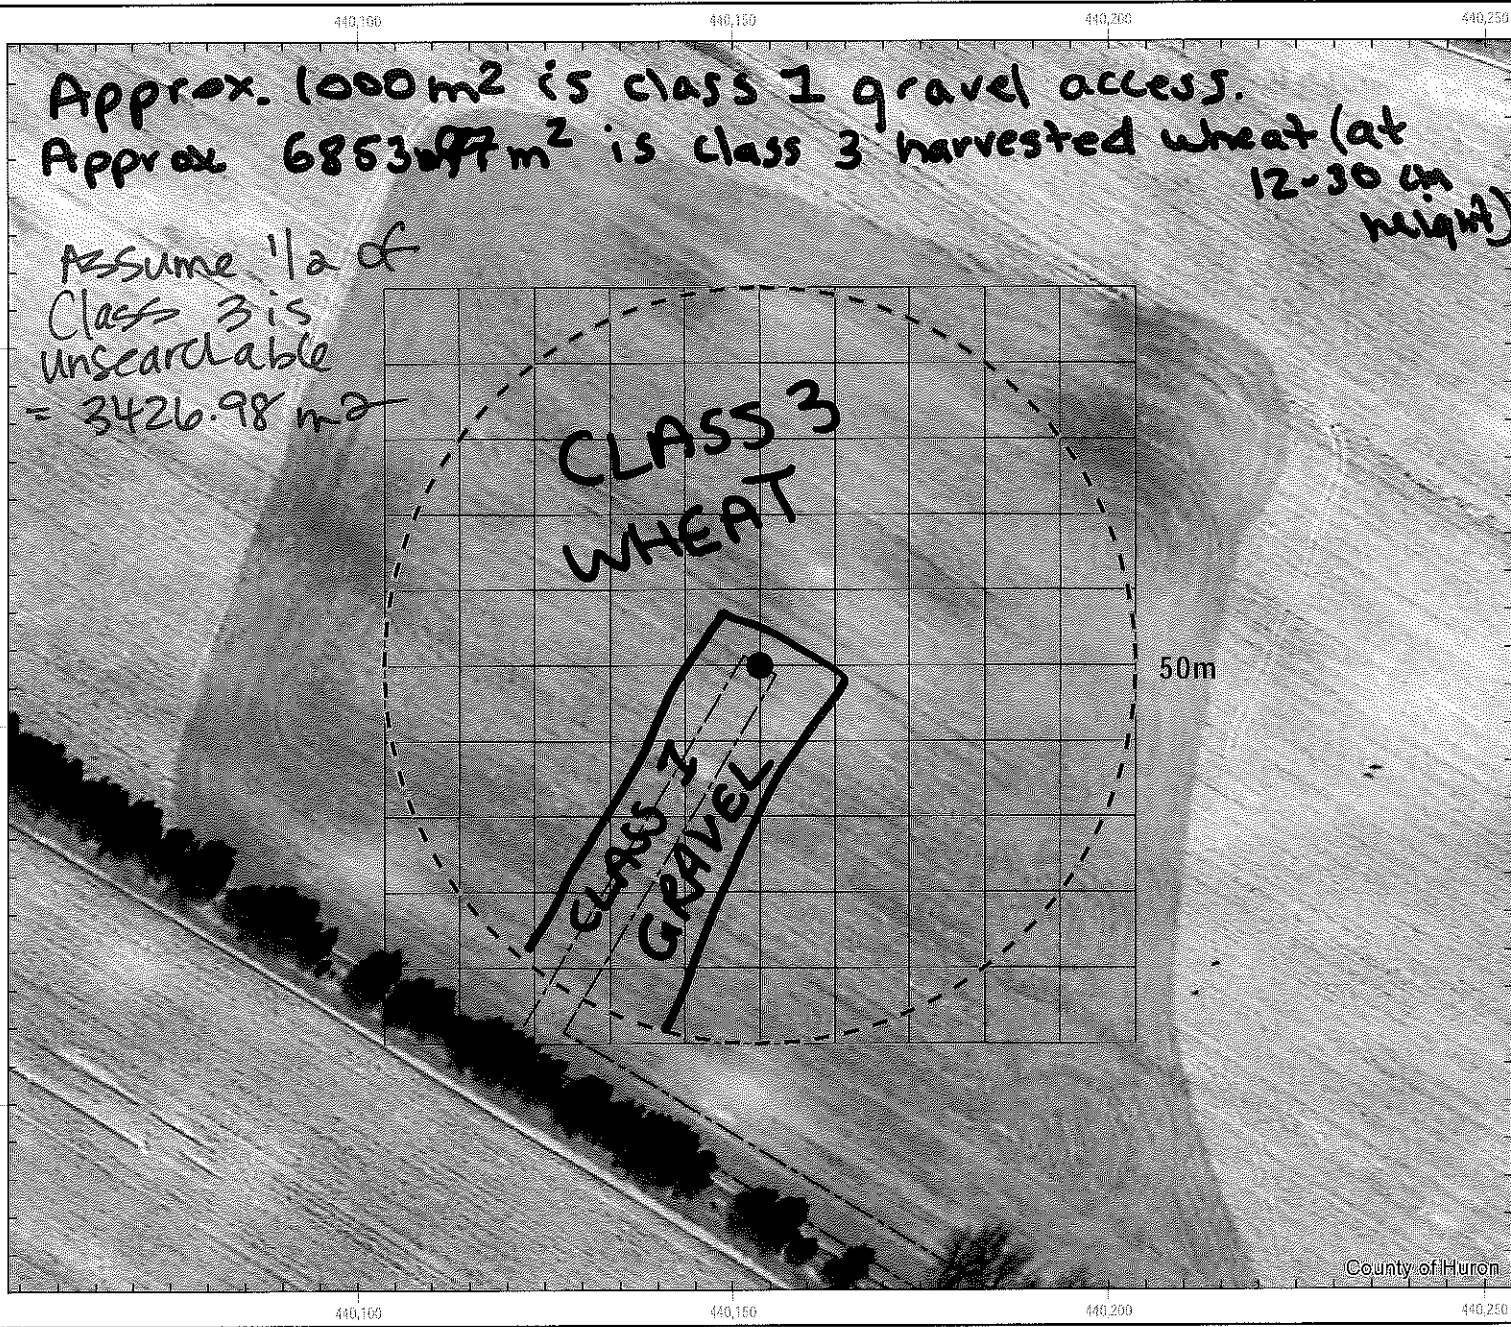 440,100 440,150 440,200 440,250
Approx. 1000m2 is class 1 gravel access.
Approx m² is class 3 harvested wheat (at
12-30 cm
height)
Assume 1/2 of
Class 3 is
unsearchable
= 3426.98 m2
CLASS 3
WHEAT
50m
CLASS 1
GRAVEL
County of Huron
440,100 440,150 440,200 440,250